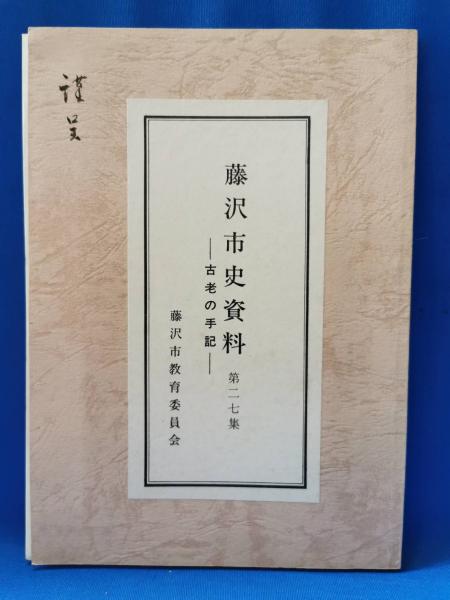 謹呈
藤沢市史資料 第二七集
―古老の手記―
藤沢市教育委員会